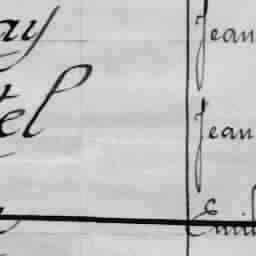 ay Jean
tel Jean
Emil